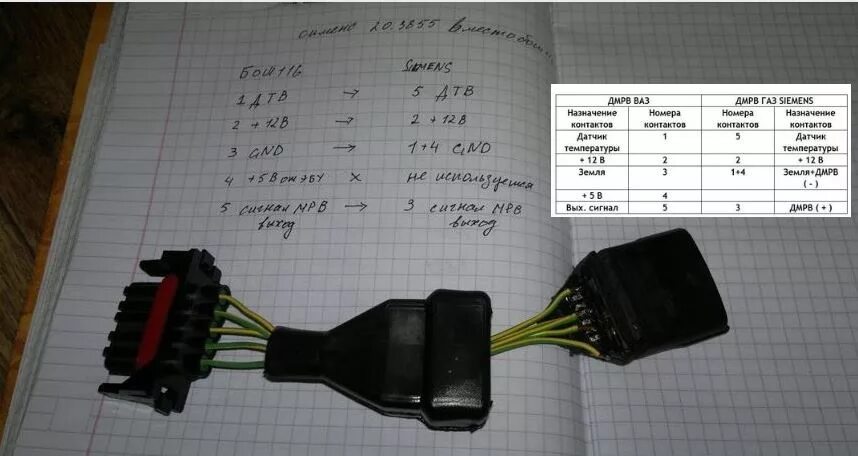 сименс 20.3855 вместо бош
БОШ 116 SIEMENS
1 ДТВ → 5 ДТВ
2 +12В → 2 +12В
3 GND → 1+4 GND
4 +5В от ЭБУ X не используется
5 сигнал МРВ → 3 сигнал МРВ
выход выход
ДМРВ ВАЗ ДМРВ ГАЗ SIEMENS
Назначение Номера Номера Назначение
контактов контактов контактов контактов
Датчик 1 5 Датчик
температуры температуры
+ 12 В 2 2 + 12 В
Земля 3 1+4 Земля+ДМРВ
( - )
+ 5 В 4
Вых. сигнал 5 3 ДМРВ ( + )